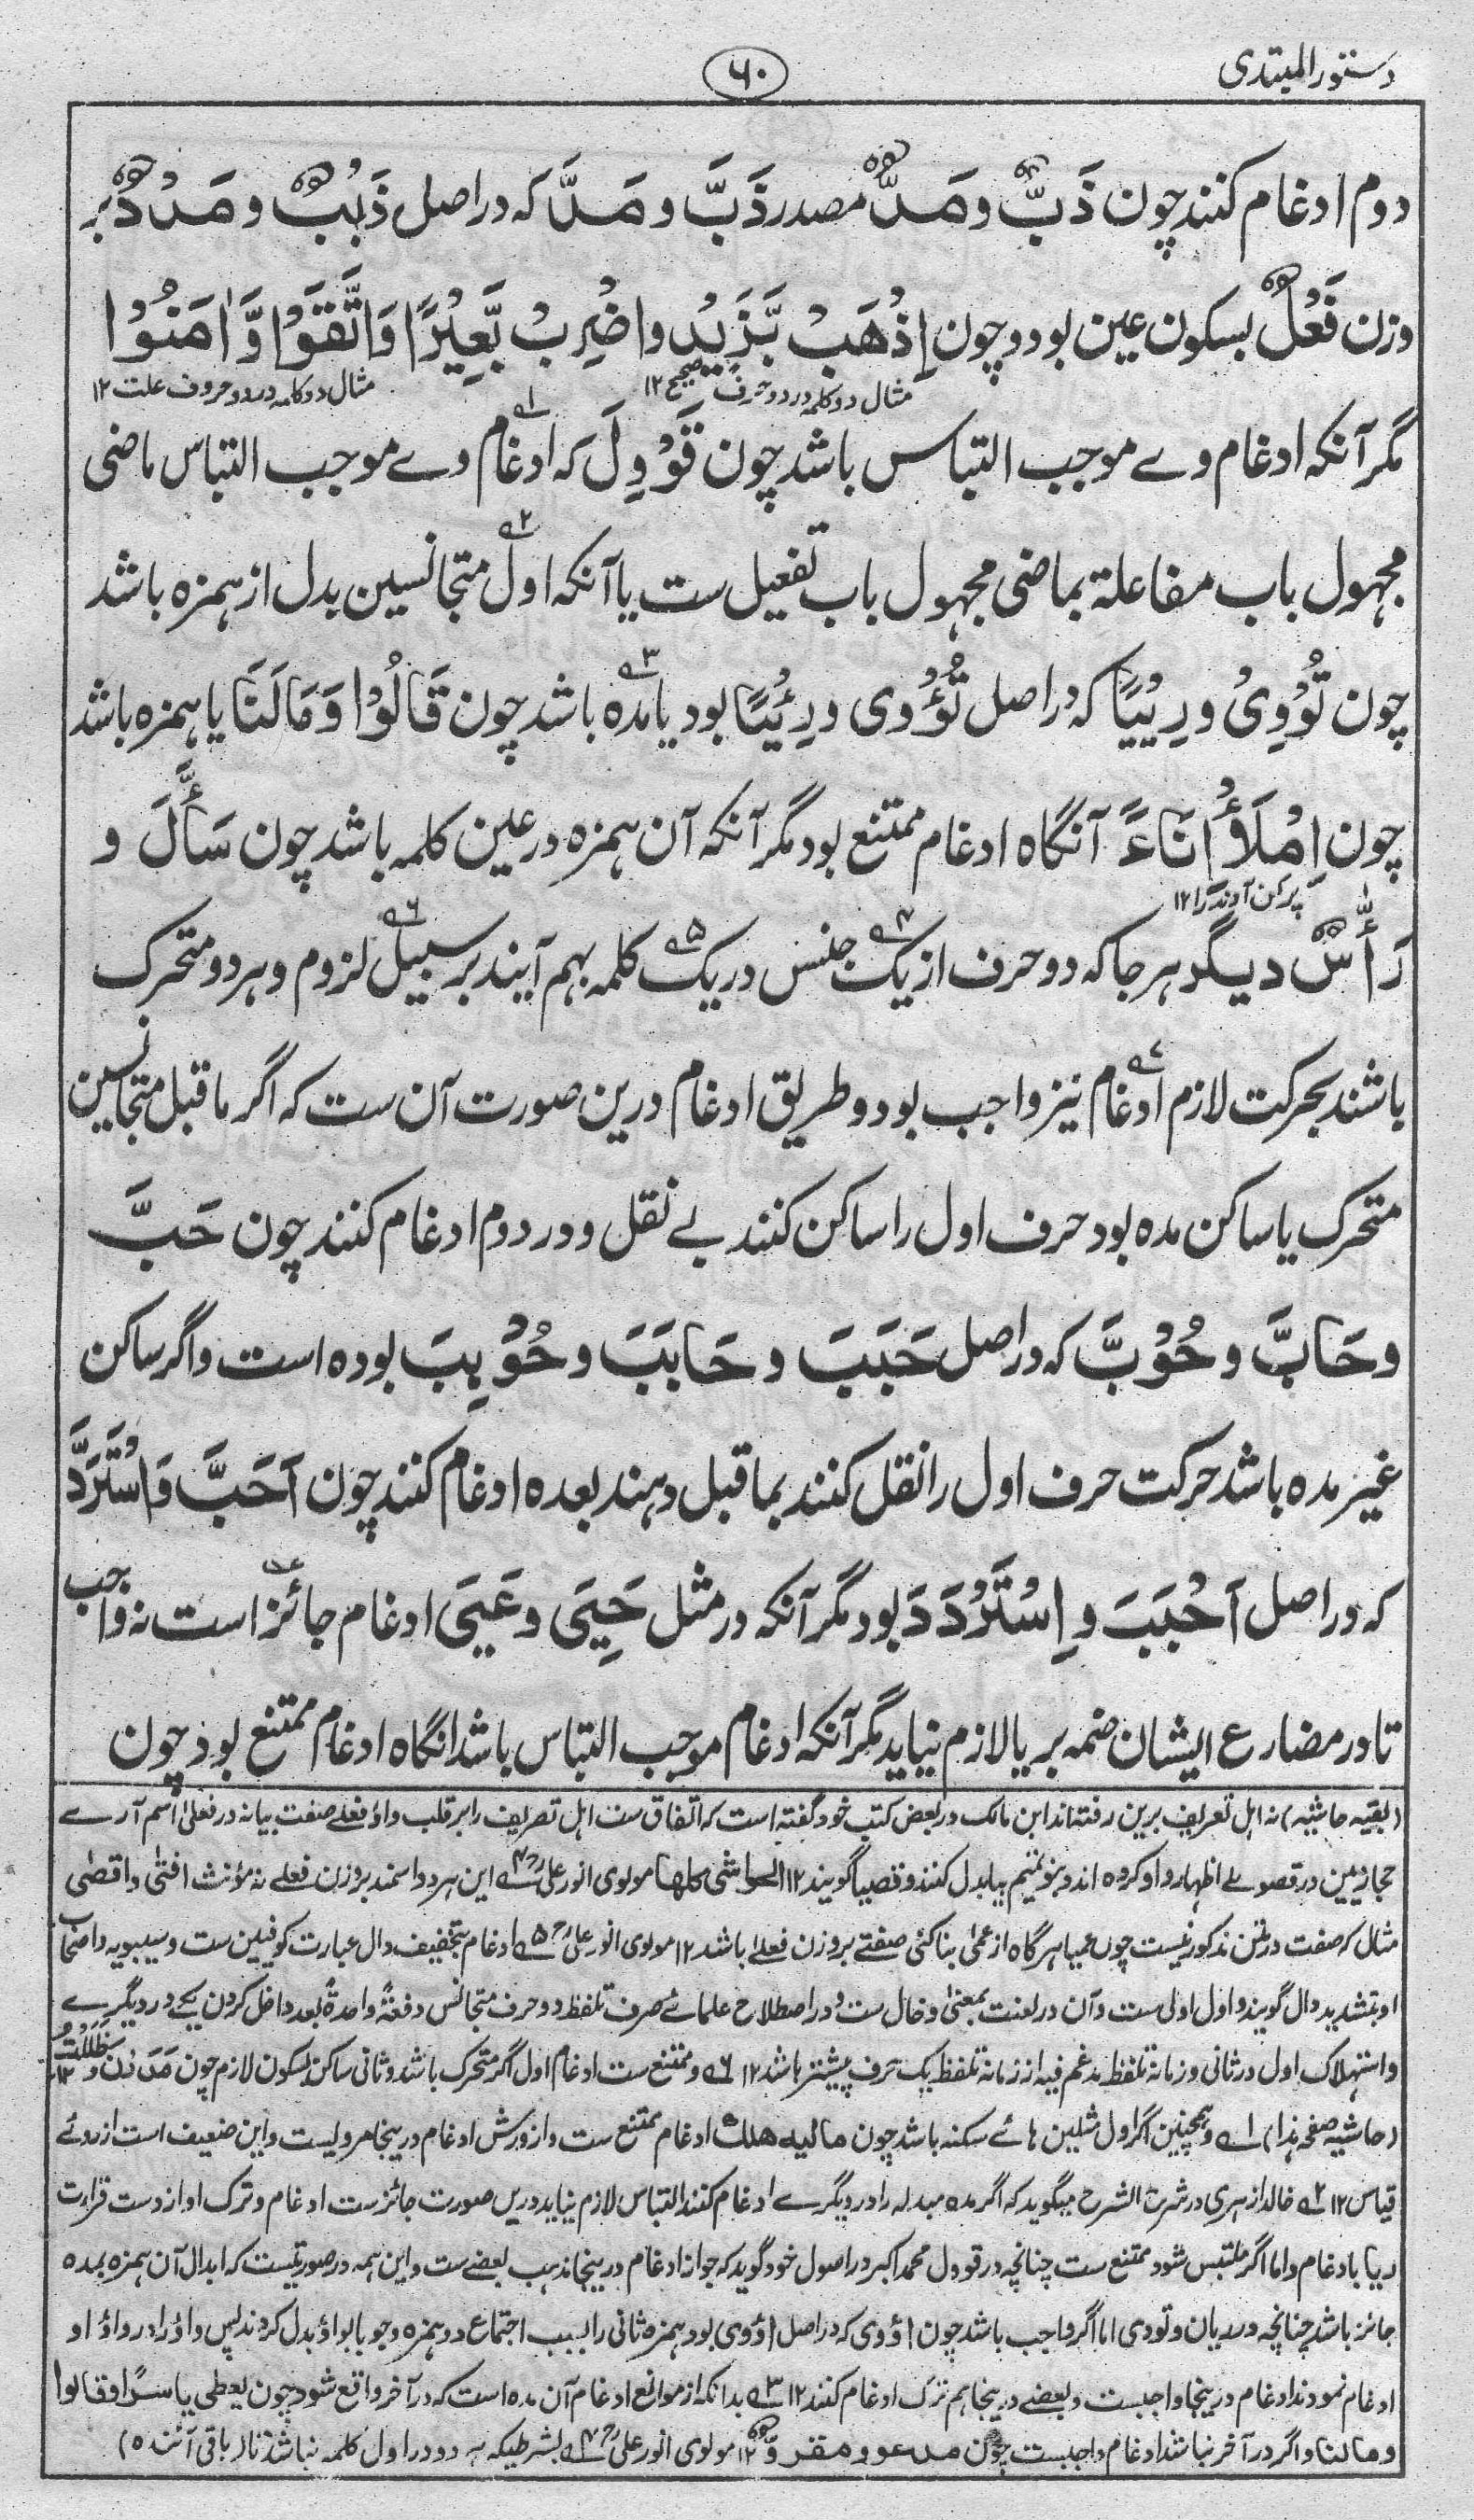 دستور المبتدی
۶۰
دوم ادغام کنند چون ذَبٌّ و مَدٌّ مصدر ذَبَّ و مَدَّ که در اصل ذَبْبٌ و مَدْدٌ بر
وزن فَعْلٌ بسکون عین بود و چون اِذْهَبْ بِّزَیْدٍ و اضْرِبْ بَّعِیْرًا وَ اتَّقَوْا وَّاٰمَنُوْا
مثال دو کلمه در دو حرف صحیح ۱۲
مثال دو کلمه در دو حروف علت ۱۲
مگر آنکه ادغام وے موجب التباس باشد چون قُوْوِلَ که ادغام وے موجب التباس ماضی
مجہول باب مفاعلة بماضی مجہول باب تفعیل ست یا آنکه اول متجانسین بدل از ہمزہ باشد
چون تُوْوِیْ و رِیْیًا که در اصل تُؤْوِی و رِئْیًا بود یا مدہ باشد چون قَالُوْا وَ مَا لَنَا یا ہمزہ باشد
چون اِمْلَأْ اِنَاءً آنگاہ ادغام ممتنع بود مگر آنکه آن ہمزہ در عین کلمہ باشد چون سَأَّلَ و
پر کن آوند را ۱۲
رَأَّسٌ دیگر ہر جا که دو حرف از یک جنس در یک کلمہ بہم آیند بر سبیل لزوم و ہر دو متحرک
باشند بحرکت لازم ادغام نیز واجب بود و طریق ادغام درین صورت آن ست که اگر ماقبل متجانسین
متحرک یا ساکن مدہ بود حرف اول را ساکن کنند بے نقل و در دوم ادغام کنند چون حَبَّ
و حَابَّ و حُوْبَّ که در اصل حَبَبَ و حَابَبَ و حُوْبِبَ بودہ است و اگر ساکن
غیر مدہ باشد حرکت حرف اول را نقل کنند بماقبل دہند بعدہ ادغام کنند چون اَحَبَّ وَ اسْتَرَدَّ
که در اصل اَحْبَبَ و اِسْتَرْدَدَ بود مگر آنکه در مثل حَیِیَ و عَیِیَ ادغام جائز است نہ واجب
تا در مضارع ایشان ضمہ بر یا لازم نیاید مگر آنکه ادغام موجب التباس باشد انگاہ ادغام ممتنع بود چون
(بقیہ حاشیہ) نہ اہل تعریف برین رفتہ اند ابن مالک در بعض کتب خود گفتہ است که اتفاق ست اہل تصریف را بر قلب واؤ فعلے صفت بیا نہ در فعلیٰ اسم آرے
حجازیین در قصوٰے اظہار واو کردہ اند و بنو تمیم بیا بدل کنند و قصیا گویند ۱۲ الحواشی کلھا مولوی انور علی این ہر دو اسمند بروزن فعلے نہ مؤنث افتٰی و اقصٰی
مثال که صفت در متن مذکور نیست چون عمیا ہرگاہ از عمی بنا کنی صفتے بروزن فعلے باشد ۱۲ مولوی انور علی ادغام بتخفیف دال عبارت کوفیین ست و سیبویہ و اصحاب
او بتشدید دال گویند و اول اولی ست و آن در لغت بمعنی ادخال ست و در اصطلاح علمائے صرف تلفظ دو حرف متجانس دفعةً واحدةً بعد داخل کردن یکے در دیگرے
و استہلاک اول در ثانی و زمانہ تلفظ مدغم فیہ از زمانہ تلفظ یک حرف بیشتر باشد ۱۲ و ممتنع ست ادغام اول اگر متحرک باشد و ثانی ساکن بسکون لازم چون مَدَدْنَ و ظَلِلْتُ ۱۲
(حاشیہ صفحہ ہذا) و ہمچنین اگر اول مثلین ہائے سکتہ باشد چون مالیہ هلك ادغام ممتنع ست و از ورش ادغام درینجا مرویست و این ضعیف است از روئے
قیاس ۱۲ خالد ازہری در شرح الشرح میگوید که اگر مدہ مبدلہ را در دیگرے ادغام کنند التباس لازم نیاید دریں صورت جائزست ادغام و ترک او از دست قرارت
ریا بادغام و اما اگر ملتبس شود ممتنع ست چنانچہ در قوول محمد اکبر در اصول خود گوید که جواز ادغام درینجا مذہب بعضے ست و این ہمہ در صورتیست که ابدال آن ہمزہ بمدہ
جائز باشد چنانچہ در ریان و تووی اما اگر واجب باشد چون اؤوی که در اصل اؤوی بود ہمزہ ثانی را بسبب اجتماع دو ہمزہ وجوبا بواؤ بدل کردند پس واؤ را در واؤ او
ادغام نمودند ادغام درینجا واجبست و بعضے درینجا ہم ترک ادغام کنند ۱۲ بدانکہ از موانع ادغام آن مدہ است که در آخر واقع شود چون یعطی یاسرًا و قالوا
و مالنا و اگر در آخر نباشد ادغام واجبست چون مدعوو مقروّ ۱۲ مولوی انور علی بشرطیکہ ہر دو در اول کلمہ نباشند (باقی آئندہ)